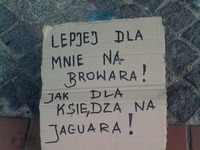 LEPJEJ DLA
MNIE NA
BROWARA!
JAK DLA
KSIĘDZA NA
JAGUARA!